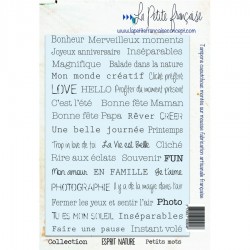 La Petite française
www.lapetitefrancaiseconcept.com
Bonheur Merveilleux moments
Joyeux anniversaire Inséparables
Magnifique Balade dans la nature
Mon monde créatif Cliché préféré
LOVE HELLO Profiter du moment présent
C'est l'été Bonne fête Maman
Bonne fête Papa Rêver CHEER
Une belle journée Printemps
Trop in love de toi La Vie est Belle Cliché
Rire aux éclats Souvenir FUN
Mon amour EN FAMILLE Je t'aime
PHOTOGRAPHIE Il y a de la magie dans l'air
Forever être et sentir Photo
TU ES MON SOLEIL Inséparables
Faire une pause Instant volé
Collection ESPRIT NATURE Petits mots
Tampons caoutchouc montés sur mousse Fabrication artisanale française